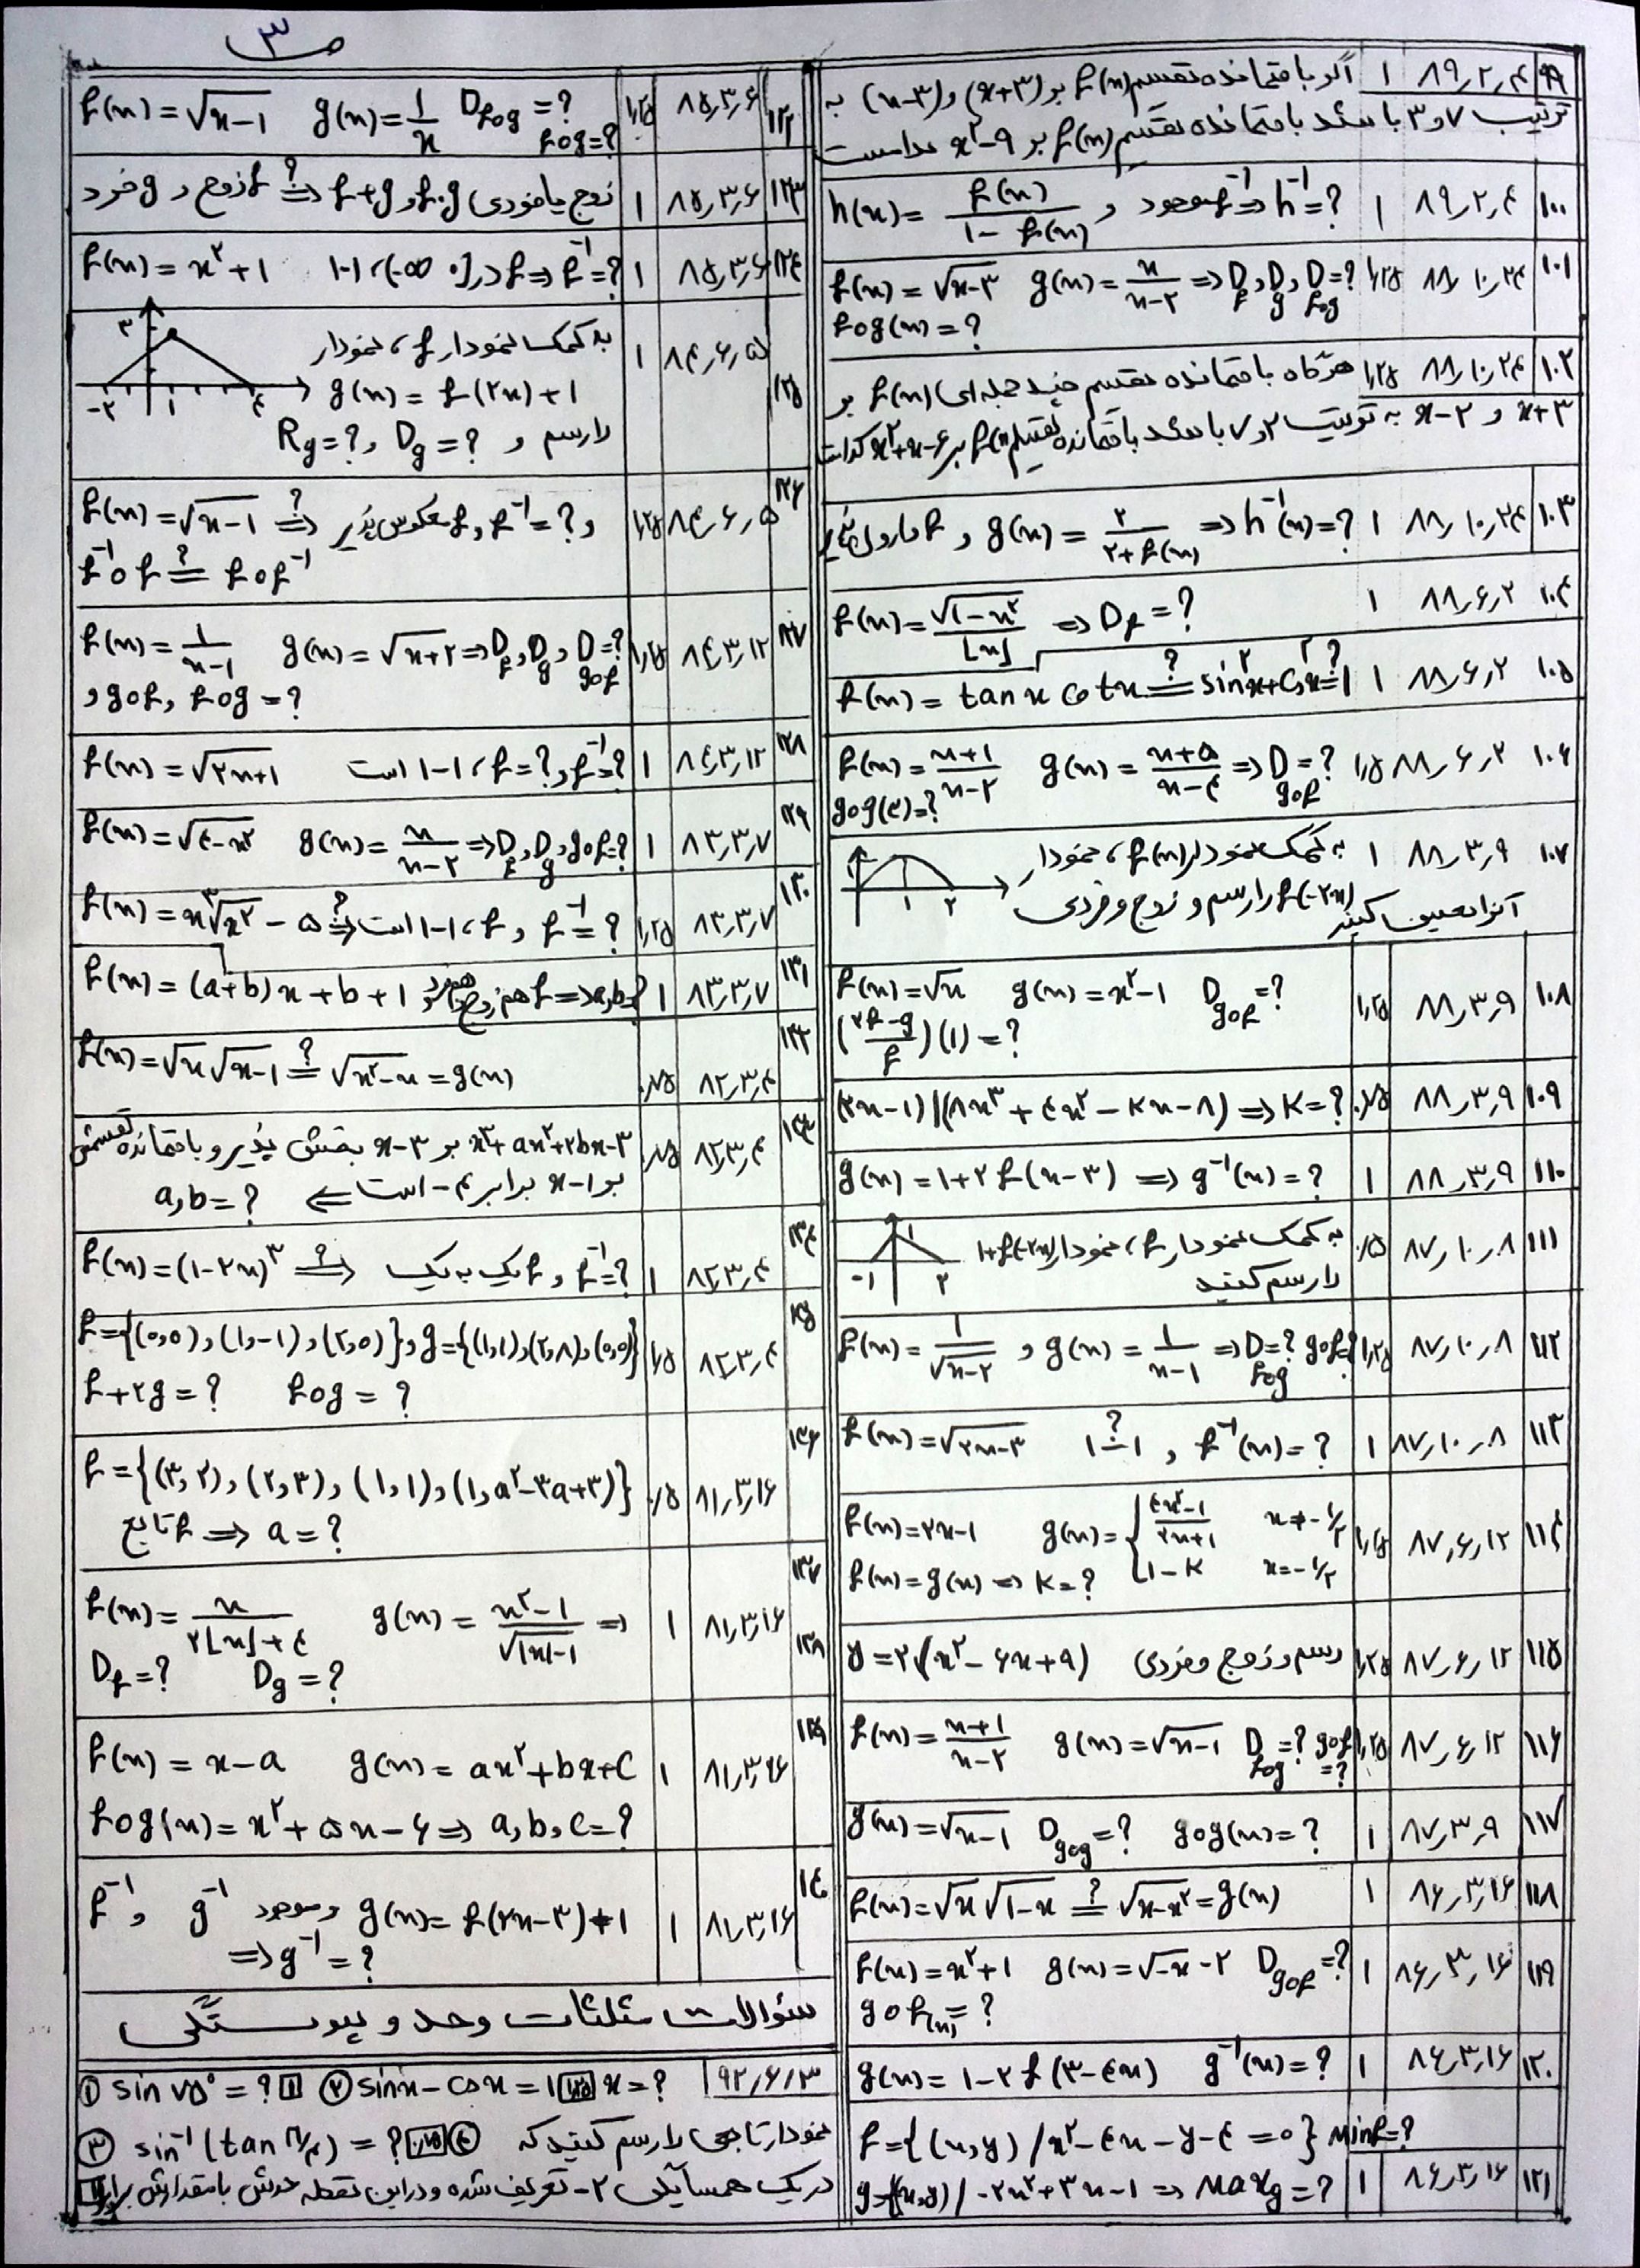 ص ۳
۹۹ ۸۹٫۲٫۴ ۱ اگر باقیمانده تقسیم f(x) بر (x+۳) و (x-۳) به
ترتیب ۷ و ۳ باشد باقیمانده تقسیم f(x) بر x²-۹ کدامست
۱۰۰ ۸۹٫۲٫۴ ۱ h(x)= f(x)/(1-f(x)) و f⁻¹ موجود ⇒ h⁻¹=?
۱۰۱ ۸۸٫۱۰٫۲۴ ۱٫۲۵ f(x)=√(x-۳) g(x)= x/(x-۲) ⇒ D_f , D_g , D_fog=?
fog(x)=?
۱۰۲ ۸۸٫۱۰٫۲۴ ۱٫۲۵ هرگاه باقیمانده تقسیم چند جمله‌ای f(x) بر
x+۳ و x-۲ به ترتیب ۲ و ۷ باشد باقیمانده تقسیم f(x) بر x²+x-۶ کدام است
۱۰۳ ۸۸٫۱۰٫۲۴ ۱ f وارون پذیر و g(x)= ۲/(۲+f(x)) ⇒ h⁻¹(x)=?
۱۰۴ ۸۸٫۶٫۲ ۱ f(x)= √(1-x²)/[x] ⇒ D_f=?
۱۰۵ ۸۸٫۶٫۲ ۱ f(x)= tanx cotx ≟ sin²x+cos²x ≟ 1
۱۰۶ ۸۸٫۶٫۲ ۱٫۵ f(x)= (x+1)/(x-۲) g(x)= (x+۵)/(x-۴) ⇒ D_gof=?
gog(۴)=?
۱۰۷ ۸۸٫۳٫۹ ۱ به کمک نمودار f(x) ، نمودار
f(-۲x) را رسم و زوج و فردی
آنرا تعیین کنید
۱ ۱ ۲
۱۰۸ ۸۸٫۳٫۹ ۱٫۲۵ f(x)=√x g(x)=x²-1 D_gof=?
((۲f-g)/f)(1)=?
۱۰۹ ۸۸٫۳٫۹ ۰٫۷۵ (۲x-1)|(۸x³+۴x²-Kx-۸) ⇒ K=?
۱۱۰ ۸۸٫۳٫۹ ۱ g(x)=1+۲f(x-۳) ⇒ g⁻¹(x)=?
۱۱۱ ۸۷٫۱۰٫۸ ۰٫۵ به کمک نمودار f ، نمودار 1+f(-۲x)
را رسم کنید
-۱ ۱ ۲
۱۱۲ ۸۷٫۱۰٫۸ ۱٫۲۵ f(x)= 1/√(x-۲) و g(x)= 1/(x-1) ⇒ D_fog=? gof=?
۱۱۳ ۸۷٫۱۰٫۸ ۱ f(x)=√(۲x-۳) 1-1 ? و f⁻¹(x)=?
۱۱۴ ۸۷٫۶٫۱۲ ۱٫۲۵ f(x)=۲x-1 g(x)={ (۴x²-1)/(۲x+1) x≠-1/۲
1-K x=-1/۲
f(x)=g(x) ⇒ K=?
۱۱۵ ۸۷٫۶٫۱۲ ۱٫۲۵ y=۲(x²-۶x+۹) رسم و زوج و فردی
۱۱۶ ۸۷٫۶٫۱۲ ۱٫۲۵ f(x)= (x+1)/(x-۲) g(x)=√(x-1) D_fog=? gof=?
۱۱۷ ۸۷٫۳٫۹ ۱ g(x)=√(x-1) D_gog=? gog(x)=?
۱۱۸ ۸۶٫۳٫۱۶ ۱ f(x)=√x √(1-x) ≟ √(x-x²)=g(x)
۱۱۹ ۸۶٫۳٫۱۶ ۱ f(x)=x²+1 g(x)=√-x -۲ D_gof=?
gof(x)=?
۱۲۰ ۸۶٫۳٫۱۶ ۱ g(x)=1-۲f(۳-۴x) g⁻¹(x)=?
f={(x,y)/x²-۴x-y-۴=0} Minf=?
۱۲۱ ۸۶٫۳٫۱۶ ۱ g={(x,y)/-۲x²+۳x-1 ⇒ Maxg=?
۱۲۲ ۸۵٫۳٫۶ ۱٫۲۵ f(x)=√(x-1) g(x)= 1/x D_fog=?
fog=?
۱۲۳ ۸۵٫۳٫۶ ۱ f زوج و g فرد ⇒? f+g و f.g (زوج یا فردی)
۱۲۴ ۸۵٫۳٫۶ ۱ f(x)=x²+1 1-1 ، (-∞ ۰] در f ⇒ f⁻¹=?
۱۲۵ ۸۴٫۶٫۵ ۱ به کمک نمودار f ، نمودار
g(x)=f(۲x)+1
را رسم و D_g=? و R_g=?
۳ -۲ ۱ ۴
۱۲۶ ۸۴٫۶٫۵ ۱٫۲۵ f(x)=√(x-1) ⇒? f معکوس پذیر و f⁻¹=? و
f⁻¹of ≟ fof⁻¹
۱۲۷ ۸۴٫۳٫۱۲ ۱٫۷۵ f(x)= 1/(x-1) g(x)=√(x+۲) ⇒ D_f , D_g , D_gof=?
و gof , fog=?
۱۲۸ ۸۴٫۳٫۱۲ ۱ f(x)=√(۲x+1) f ، 1-1 است ? و f⁻¹=?
۱۲۹ ۸۳٫۳٫۷ ۱ f(x)=√(۴-x²) g(x)= x/(x-۲) ⇒ D_f , D_g , gof=?
۱۳۰ ۸۳٫۳٫۷ ۱٫۲۵ f(x)=x∛x² -۵ ⇒? f ، 1-1 است و f⁻¹=?
۱۳۱ ۸۳٫۳٫۷ ۱ f(x)=(a+b)x+b+1 f هم زوج هم فرد ⇒ a,b=?
۱۳۲ ۸۲٫۳٫۴ ۰٫۷۵ f(x)=√x √(x-1) ≟ √(x²-x)=g(x)
۱۳۳ ۸۲٫۳٫۴ ۰٫۷۵ x³+ax²+۲bx-۳ بر x-۳ بخش پذیر و باقیمانده تقسیمش
بر x-1 برابر ۴- است ⇐ a,b=?
۱۳۴ ۸۲٫۳٫۴ ۱ f(x)=(1-۲x)³ ⇒? f یک به یک و f⁻¹=?
۱۳۵ ۸۲٫۳٫۴ ۱٫۵ f={(0,0),(1,-1),(۲,0)} , g={(1,1),(۲,۸),(0,0)}
f+۲g=? fog=?
۱۳۶ ۸۱٫۳٫۱۶ ۰٫۵ f={(۳,۲),(۲,۳),(1,1),(1,a²-۳a+۳)}
f تابع ⇒ a=?
۱۳۷ ۱۳۸ ۸۱٫۳٫۱۶ ۱ f(x)= x/(۲[x]+۴) g(x)= (x²-1)/√(|x|-1) ⇒
D_f=? D_g=?
۱۳۹ ۸۱٫۳٫۱۶ ۱ f(x)=x-a g(x)=ax²+bx+c
fog(x)=x²+۵x-۶ ⇒ a,b,c=?
۱۴۰ ۸۱٫۳٫۱۶ ۱ f⁻¹ و g⁻¹ موجود و g(x)=f(۲x-۳)+1
⇒ g⁻¹=?
سؤالات مثلثات وحد و پیوستگی
۹۲٫۶٫۳ ① sin۷۵°=? 1 ② sinx-cosx=1 ۱٫۲۵ x=?
③ sin⁻¹(tanπ/۴)=? ④ نمودار تابعی را رسم کنید که
در یک همسایگی ۲- تعریف شده و در این نقطه حدش با مقدارش برابر